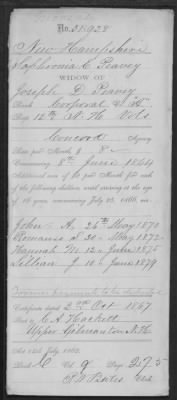 No. 58928
New Hampshire
Sophronia C Peavey
WIDOW OF
Joseph D Peavey
Rank Corporal Co
Regt 12th N. H. Vols
Concord Agency
Rate per Month, $ 8
Commencing 8th June 1864
Additional sum of $2 per month for each
of the following children, until arriving at the age
of 16 years, commencing July 25, 1866, viz:
John A, 26th May 1870
Romanzo 30 May 1872
Hannah M 12 June 1875
Lillian J 10 June 1879
Certificate dated 2nd Oct 1867
Sent to E A Hackett
Upper Gilmanton N.H.
Act 14th July, 1862.
Book C Vol 9 Page 275
Clk